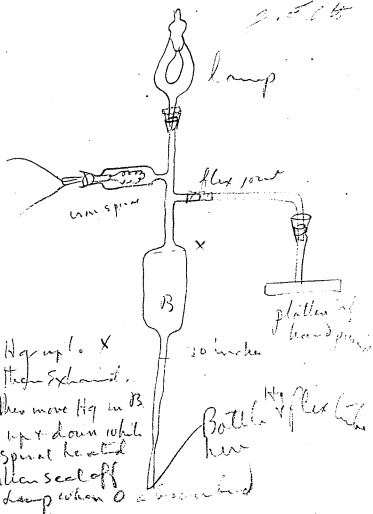 lamp
flex joint
iron spiral
x
B
platten of
hand pump
20 inches
Hg up to x
then Exhaust.
then move Hg in B
up & down while
spiral heated
then seal off
Lamp when O absorbed
Bottle Hg & flex tube
here